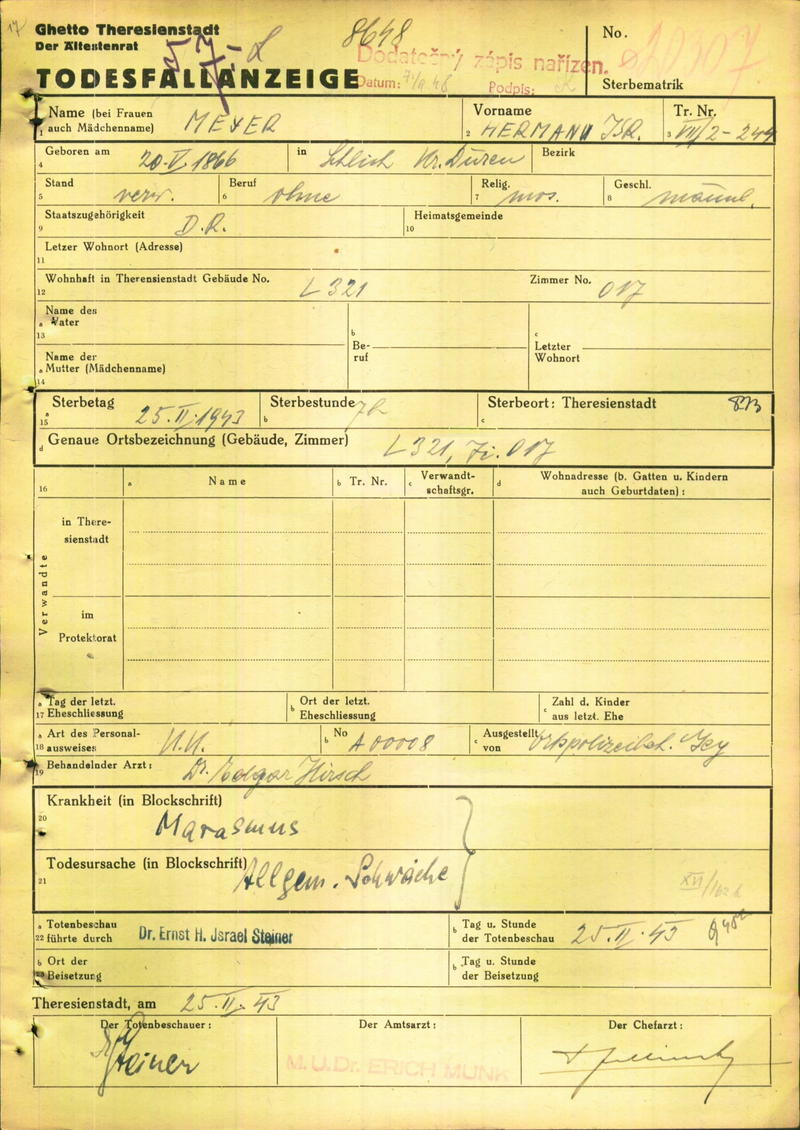 17
Ghetto Theresienstadt
Der Ältestenrat
8648
No.
Dodatečný zápis nařízen.
TODESFALLANZEIGE
Datum: Podpis:
Sterbematrik
Name (bei Frauen auch Mädchenname) MEYER
Vorname HERMANN ISR.
Tr. Nr.
1 2 3 VII/2-244
Geboren am 20.V.1866 in Kr. Düren Bezirk
4
Stand verw. Beruf ohne Relig. mos. Geschl. männl.
5 6 7 8
Staatszugehörigkeit D.R. Heimatsgemeinde
9 10
Letzer Wohnort (Adresse)
11
Wohnhaft in Therensienstadt Gebäude No. L 321 Zimmer No. 017
12
Name des
a Vater
13
b Be-
ruf
c Letzter
Wohnort
Name der
a Mutter (Mädchenname)
14
Sterbetag 25.II.1943 Sterbestunde 7h Sterbeort: Theresienstadt
a 15 b c
d Genaue Ortsbezeichnung (Gebäude, Zimmer) L 321, Zi. 017
16 a Name b Tr. Nr. c Verwandt-
schaftsgr. d Wohnadresse (b. Gatten u. Kindern
auch Geburtdaten):
Verwandte
in There-
sienstadt
im
Protektorat
a Tag der letzt.
17 Eheschliessung
b Ort der letzt.
Eheschliessung
c Zahl d. Kinder
aus letzt. Ehe
a Art des Personal-
18 ausweises
b No A 00008
c Ausgestellt
von Ortspolizeibeh.
19 Behandelnder Arzt: Dr. Edgar Hirsch
Krankheit (in Blockschrift)
20
Marasmus
Todesursache (in Blockschrift) Allgem. Schwäche
21
a Totenbeschau
22 führte durch Dr. Ernst H. Jsrael Steiner
b Tag u. Stunde
der Totenbeschau 25.II.43
b Ort der
23 Beisetzung
b Tag u. Stunde
der Beisetzung
Theresienstadt, am 25.II.43
Der Totenbeschauer: Der Amtsarzt: Der Chefarzt:
Steiner
M.U.Dr. ERICH MUNK